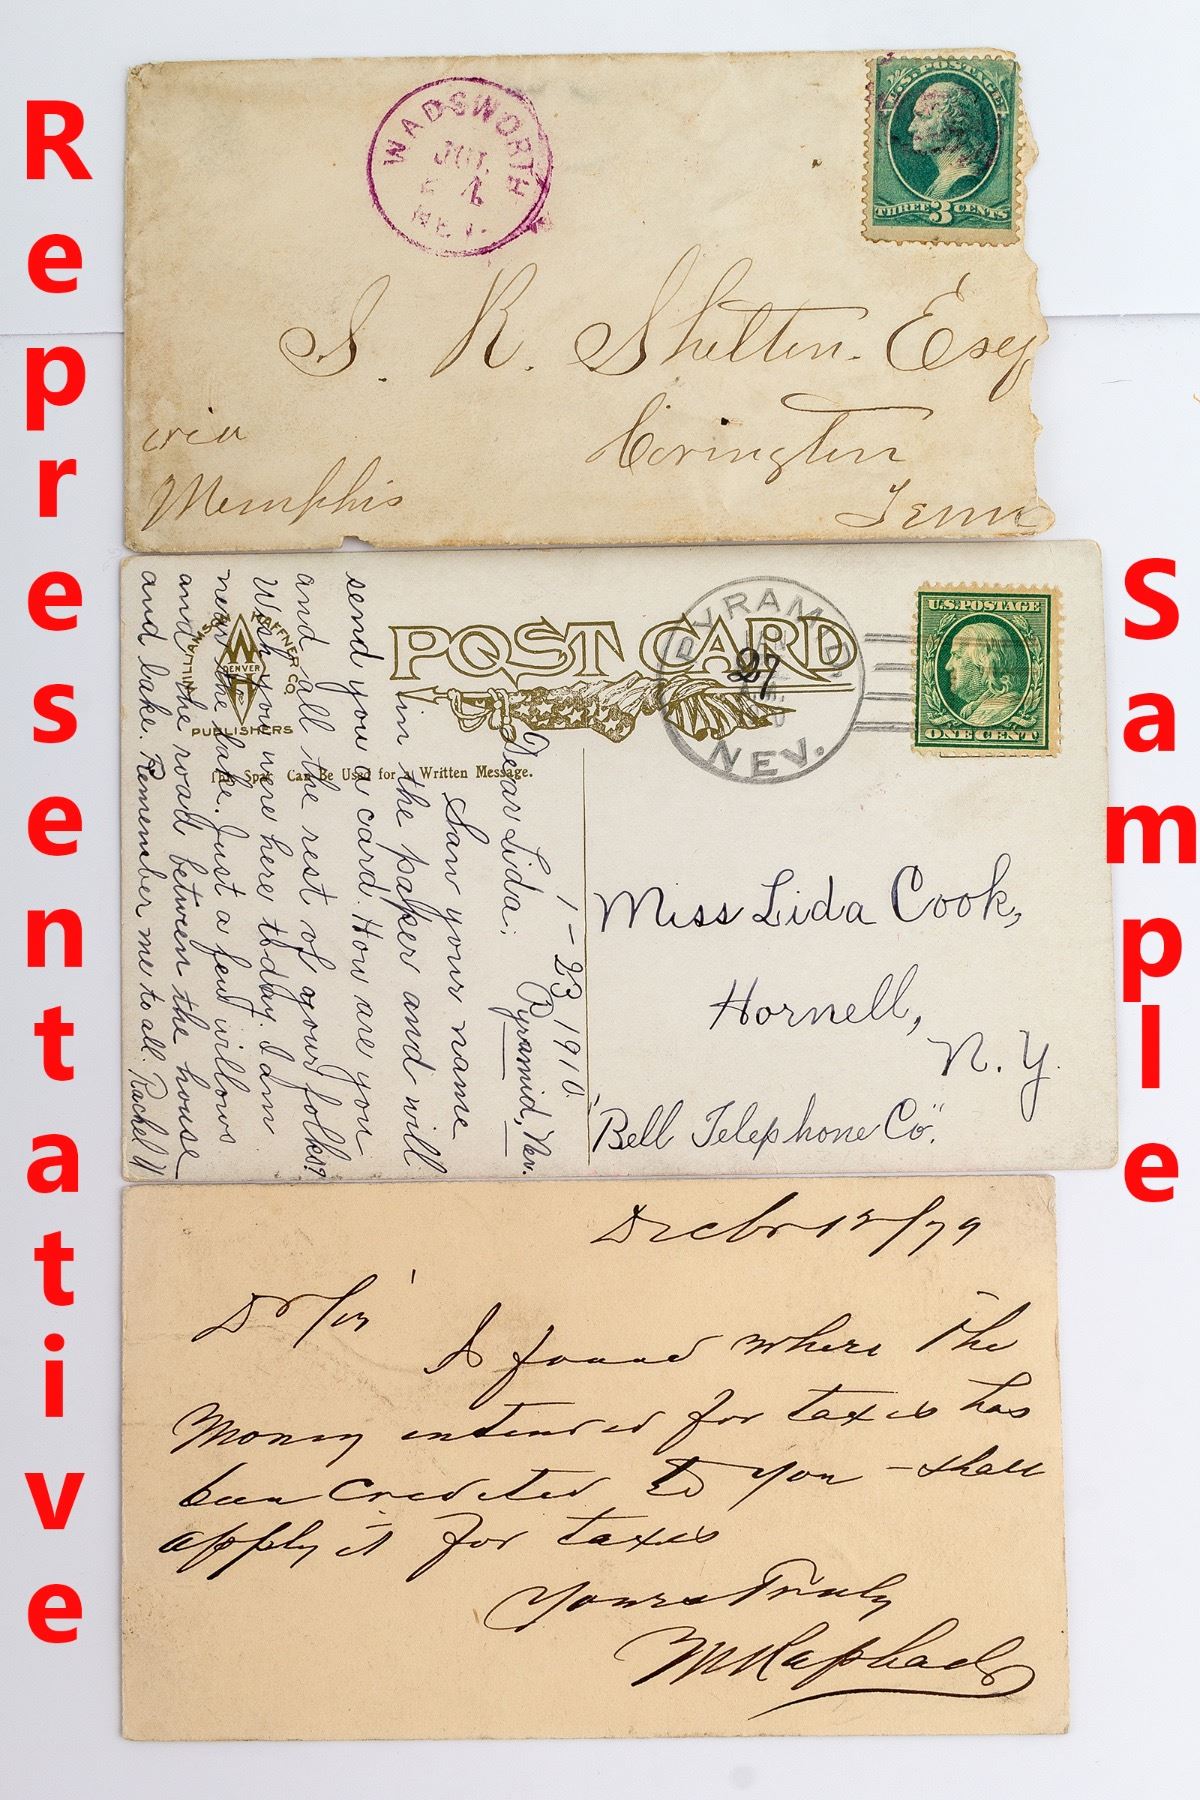 Representative
Sample
WADSWORTH
NEV.
U.S. POSTAGE
THREE 3 CENTS
S. R. Shelton. Esq
Covington
Tenn
via
Memphis
POST CARD
PYRAMID
27
NEV.
U.S. POSTAGE
ONE CENT
HAFFNER CO.
DENVER
PUBLISHERS
This Space Can Be Used for a Written Message.
1-23 1910.
Pyramid, Nev.
Dear Lida;
Saw your name
in the paper and will
send you a card. How are you
and all the rest of your folks?
Wish you were here today. I am
near the lake. Just a few willows
and the road between the house
and lake. Remember me to all. Rachel
Miss Lida Cook,
Hornell,
N. Y.
"Bell Telephone Co."
Decbr 12/79
Dr Sir
I found where the
Money intended for taxes has
been credited to you - shall
apply it for taxes
Yours Truly
M Raphael